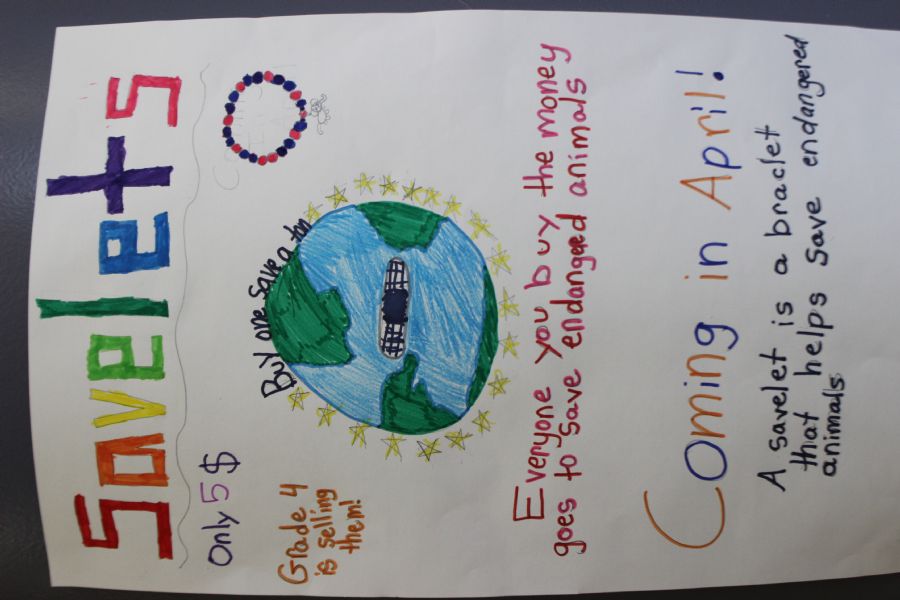 Savelets
Only 5$
Grade 4
is selling
them!
Buy one save a
Everyone you buy the money
goes to save endangered animals
Coming in April!
A savelet is a braclet
that helps save endangered
animals